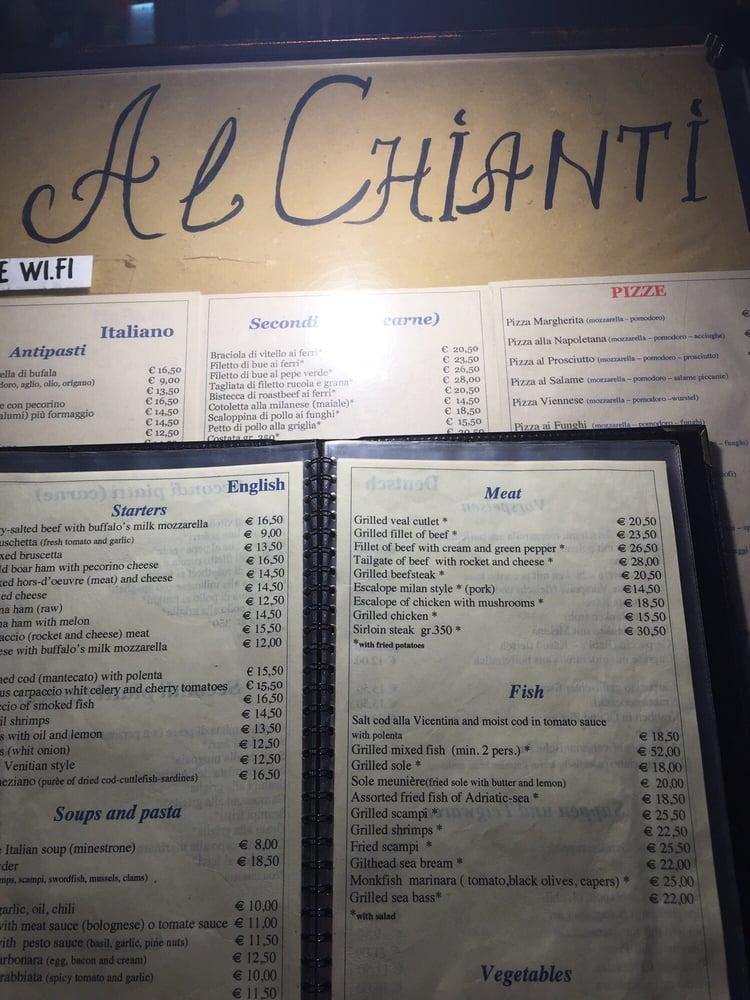 Al CHiANTi
E WI.FI
Italiano
Antipasti
ella di bufala € 16,50
doro, aglio, olio, origano) € 9,00
€ 13,50
e con pecorino € 16,50
alumi) più formaggio € 14,50
€ 14,50
€ 12,50
Secondi carne)
Braciola di vitello ai ferri* € 20,50
Filetto di bue ai ferri* € 23,50
Filetto di bue al pepe verde* € 26,50
Tagliata di filetto rucola e grana* € 28,00
Bistecca di roastbeef ai ferri* € 20,50
Cotoletta alla milanese (maiale)* € 14,50
Scaloppina di pollo ai funghi* € 18,50
Petto di pollo alla griglia* € 15,50
Costata gr. 350*
PIZZE
Pizza Margherita (mozzarella – pomodoro) €
Pizza alla Napoletana (mozzarella – pomodoro – acciughe)
Pizza al Prosciutto (mozzarella – pomodoro – prosciutto)
Pizza al Salame (mozzarella – pomodoro – salame piccante)
Pizza Viennese (mozzarella – pomodoro –wurstel)
Pizza ai Funghi (mozzarella – pomodoro – funghi)
English
Starters
ry-salted beef with buffalo's milk mozzarella € 16,50
uschetta (fresh tomato and garlic) € 9,00
xed bruscetta € 13,50
ld boar ham with pecorino cheese € 16,50
ked hors-d'oeuvre (meat) and cheese € 14,50
ked cheese € 14,50
na ham (raw) € 12,50
na ham with melon € 14,50
accio (rocket and cheese) meat € 15,50
ese with buffalo's milk mozzarella € 12,00
med cod (mantecato) with polenta € 15,50
us carpaccio whit celery and cherry tomatoes € 15,50
ccio of smoked fish € 16,50
il shrimps € 14,50
s with oil and lemon € 13,50
s (whit onion) € 12,50
Venitian style € 12,50
neziano (purée of dried cod-cuttlefish-sardines) € 16,50
Soups and pasta
e Italian soup (minestrone) € 8,00
der € 18,50
mps, scampi, swordfish, mussels, clams)
garlic, oil, chili € 10,00
with meat sauce (bolognese) o tomate sauce € 11,00
with pesto sauce (basil, garlic, pine nuts) € 11,50
arbonara (egg, bacon and cream) € 12,50
rrabbiata (spicy tomato and garlic) € 10,00
€ 11,50
Meat
Grilled veal cutlet * € 20,50
Grilled fillet of beef * € 23,50
Fillet of beef with cream and green pepper * € 26,50
Tailgate of beef with rocket and cheese * € 28,00
Grilled beefsteak * € 20,50
Escalope milan style * (pork) €14,50
Escalope of chicken with mushrooms * € 18,50
Grilled chicken * € 15,50
Sirloin steak gr.350 * € 30,50
*with fried potatoes
Fish
Salt cod alla Vicentina and moist cod in tomato sauce
with polenta € 18,50
Grilled mixed fish (min. 2 pers.) * € 52,00
Grilled sole * € 18,00
Sole meunière(fried sole with butter and lemon) € 20,00
Assorted fried fish of Adriatic-sea * € 18,50
Grilled scampi * € 25,50
Grilled shrimps * € 22,50
Fried scampi * € 25,50
Gilthead sea bream * € 22,00
Monkfish marinara ( tomato,black olives, capers) * € 25,00
Grilled sea bass* € 22,00
*with salad
Vegetables